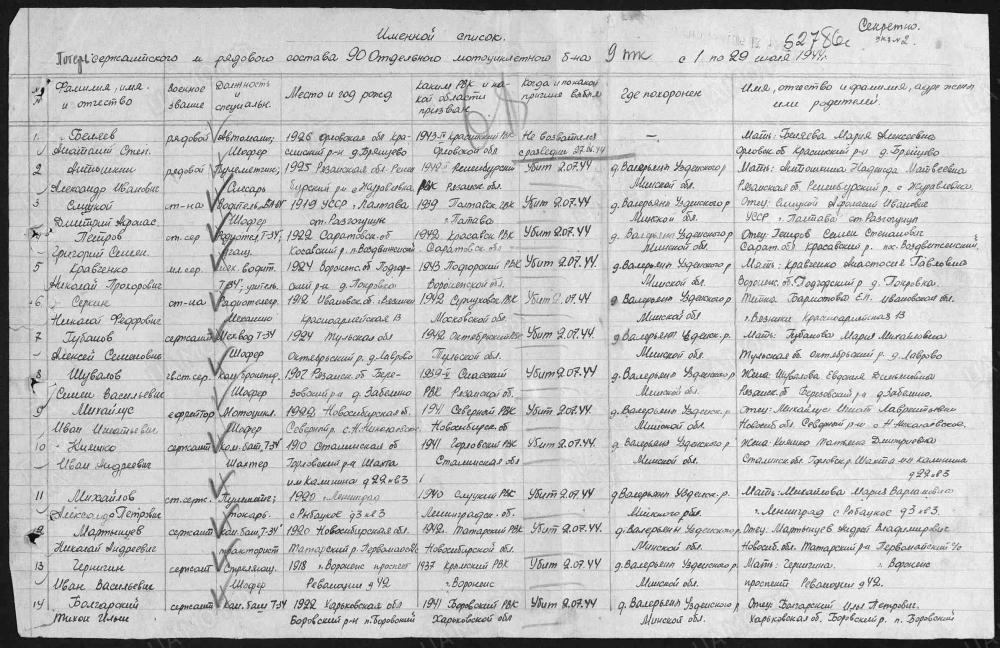 Секретно.
экз №2.
Именной список.
52786с
Потерь сержантского и рядового состава 90 Отдельного мотоциклетного б-на 9 тк с 1 по 29 июля 1944г.
№ Фамилия, имя и отчество Военное звание Должность и специальн. Место и год рожд Каким РВК и какой области призван Когда и по какой причине выбыл Где похоронен Имя, отчество и фамилия, адр жены или родителей.
1. Беляев рядовой Автоматч; 1926 Орловская обл Кра- 1943 г Красинский РВК Не возвратился — Мать: Беляева Мария Алексеевна
Анатолий Степ. Шофер синский р-н д. Орловской обл с разведки 27.06.44 Орловск. об Красинский р-н д.
2 Антошкин рядовой Пулеметчик; 1925 Рязанской обл Убит 2.07.44 д. Валерьяни Узденского р Мать: Антошкина Надежда Матвеевна
Александр Иванович Слесарь с Журавлевка РВК Рязанск обл. Минской обл Рязанской об. с Журавлевка.
3 ст-на Водитель 1919 УССР г. Полтава 1939 Полтавск РВК Убит 2.07.44 д. Валерьяни Узденского р Отец: Иванович
Дмитрий Афонас. Шофер г Полтава Минской обл УССР г Полтава
Петров ст. сер. Т-34, 1922 Саратовск. об 1942 Красавск. РВК Убит 2.07.44 д. Валерьяни Узденского р Отец: Петров Семен Степанович
Григорий Семен. Саратовск обл Минской обл. Сарат. обл
5 Кравченко мл. сер. Мех. водит. 1924 Воронеж. об Подгор- 1943 Подгорский РВК Убит 2.07.44. д. Валерьяни Узденского р Мать: Кравченко Анастасия Павловна
Николай Прохорович Т-34; учитель. ский р-н д. Покровка Воронежской обл Минской обл. Воронеж. об. Подгорский р д. Покровка.
6 Серкин ст-на Радиотелегр. 1912 Ивановск. об г. Вязники 1942 Серпуховск. РВК Убит 2.07.44 д. Валерьяни Узденского р Ивановская обл
Николай Федорович Механик Красноармейская 13 Московской обл. Минской обл г. Вязники Красноармейская 13
7 Губанов сержант Мехвод Т-34 1924 Тульская обл 1942 Октябрьский РВК Убит 2.07.44 д. Валерьяни Узденск. р. Мать: Губанова Мария Михайловна
Алексей Семенович Шофер Октябрьский р. д. Лаврово Тульской обл. Минской обл. Тульская об. Октябрьский р. д Лаврово
8 Шувалов гв. ст. сер. 1907 Рязанск. об Бере- 1939 г Спасский Убит 2.07.44. д. Валерьяни Узденского р Жена Шувалова Евдокия
Семен Васильевич Шофер зовский р-н д Забелино РВК Рязанской об. Минской обл. Рязанск. об Березовский р-н д Забелино.
9 Михайлус ефрейтор Мотоцикл. 1922 Новосибирская об. 1941 Северный РВК Убит 2.07.44 д. Валерьяни Узденск. р Отец: Михайлус Игнат Лаврентьевич
Иван Игнатьевич Шофер Северный р. с. Новосибирск об Минской обл. Новосиб обл. Северный р-н
10 Кияшко сержант Ком. баш. Т-34 1910 Сталинская об 1941 Горловский РВК Убит 2.07.44 д. Валерьяни Узденского р Жена Кияшко Татьяна Дмитриевна
Иван Андреевич Шахтер Горловский р-н Шахта Сталинская обл Минской обл. Сталинск об. Горловск р. Шахта им Калинина
им Калинина д 22 кв 3 д 22 кв 3
11 Михайлов ст. серж. Пулеметч; 1920 г. Ленинград 1940 Слуцкий РВК Убит 2.07.44 д. Валерьяни Узденск. р. Мать: Михайлова Мария Варламовна
Александр Петрович токарь. с Рыбацкое д 3 кв 3 Ленинградск. об. Минской обл. г. Ленинград с Рыбацкое д 3 кв 3.
12 Мартынцев сержант Ком. баш Т-34 1920 Новосибирская обл. 1942 Татарский РВК Убит 2.07.44. д. Валерьяни Узденского р Отец: Мартынцев Андрей Владимирович
Николай Андреевич тракторист Татарский р. Новосибирской об. Минской обл. Новосиб. об. Татарский р-н
13 Гернигин сержант 1918 г Воронеж проспект 1937 РВК Убит 2.07.44 д. Валерьяни Узденского р. Мать: Гернигина. г. Воронеж
Иван Васильевич Шофер Революции д 42 г Воронеж Минской обл. проспект Революции д 42.
14 Болгарский сержант Ком. баш Т-34 1922 Харьковская обл 1941 Боровский РВК Убит 2.07.44 д. Валерьяни Узденского р Отец: Болгарский Илья Петрович.
Тихон Ильич Боровский р-н п. Боровский Харьковской обл Минской обл. Харьковская об. Боровский р. п. Боровский